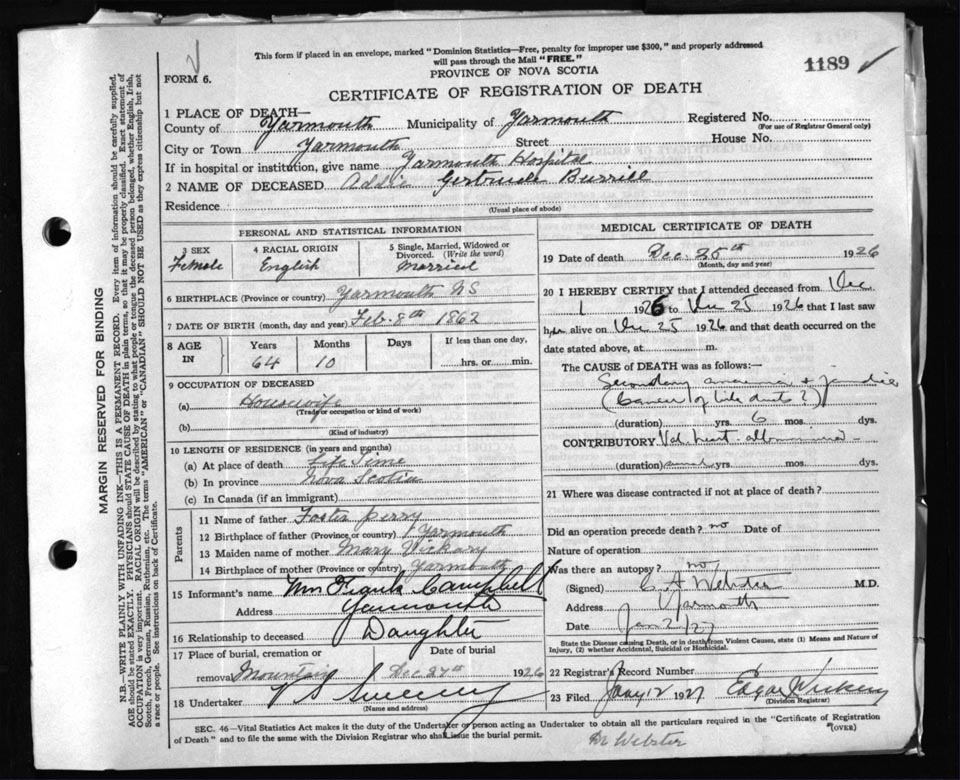 This form if placed in an envelope, marked "Dominion Statistics—Free, penalty for improper use $300," and properly addressed
will pass through the Mail "FREE."
PROVINCE OF NOVA SCOTIA
1189
FORM 6.
CERTIFICATE OF REGISTRATION OF DEATH
MARGIN RESERVED FOR BINDING
N.B.—WRITE PLAINLY WITH UNFADING INK—THIS IS A PERMANENT RECORD. Every item of information should be carefully supplied.
AGE should be stated EXACTLY. PHYSICIANS should STATE CAUSE OF DEATH in plain terms, so that it may be properly classified. Exact statement of
OCCUPATION is very important. RACIAL ORIGIN will be described by stating to what people or tongue the deceased person belonged, whether English, Irish,
Scotch, French, German, Russian, Ruthenian, etc. The terms "AMERICAN" or "CANADIAN" SHOULD NOT BE USED as they express citizenship but not
a race or people. See instructions on back of Certificate.
1 PLACE OF DEATH—
County of Yarmouth Municipality of Yarmouth Registered No.
(For use of Registrar General only)
City or Town Yarmouth Street House No.
If in hospital or institution, give name Yarmouth Hospital
2 NAME OF DECEASED Addie Gertrude Burrill
Residence
(Usual place of abode)
PERSONAL AND STATISTICAL INFORMATION
3 SEX Female
4 RACIAL ORIGIN English
5 Single, Married, Widowed or Divorced. (Write the word) Married
6 BIRTHPLACE (Province or country) Yarmouth NS
7 DATE OF BIRTH (month, day and year) Feb. 8th 1862
8 AGE IN Years Months Days If less than one day,
64 10 hrs. or min.
9 OCCUPATION OF DECEASED
(a) Housewife
(Trade or occupation or kind of work)
(b)
(Kind of industry)
10 LENGTH OF RESIDENCE (in years and months)
(a) At place of death Life Time
(b) In province Nova Scotia
(c) In Canada (if an immigrant)
Parents
11 Name of father Foster Perry
12 Birthplace of father (Province or country) Yarmouth
13 Maiden name of mother Mary Vickary
14 Birthplace of mother (Province or country) Yarmouth
15 Informant's name Mrs Frank Campbell
Address Yarmouth
16 Relationship to deceased Daughter
17 Place of burial, cremation or Date of burial
removal Mountain Dec 27th 1926
18 Undertaker V S Sweeney
(Name and address)
MEDICAL CERTIFICATE OF DEATH
19 Date of death Dec. 25th 1926
(Month, day and year)
20 I HEREBY CERTIFY that I attended deceased from Dec
1 1926 to Dec 25 1926 that I last saw
her alive on Dec 25 1926 and that death occurred on the
date stated above, at m.
The CAUSE OF DEATH was as follows:—
Secondary anaemia + jaundice
(Cancer of bile ducts?)
(duration) yrs. 6 mos. dys.
CONTRIBUTORY Val. heart - albuminuria -
(duration) several yrs. mos. dys.
21 Where was disease contracted if not at place of death?
Did an operation precede death? no Date of
Nature of operation
Was there an autopsy? no
(Signed) C A Webster M.D.
Address Yarmouth
Date Jan 2/27
State the Disease causing Death, or in death from Violent Causes, state (1) Means and Nature of
Injury, (2) whether Accidental, Suicidal or Homicidal.
22 Registrar's Record Number
23 Filed Jany 12 1927 Edgar
(Division Registrar)
SEC. 46—Vital Statistics Act makes it the duty of the Undertaker or person acting as Undertaker to obtain all the particulars required in the "Certificate of Registration
of Death" and to file the same with the Division Registrar who shall issue the burial permit.
(OVER)
Dr Webster